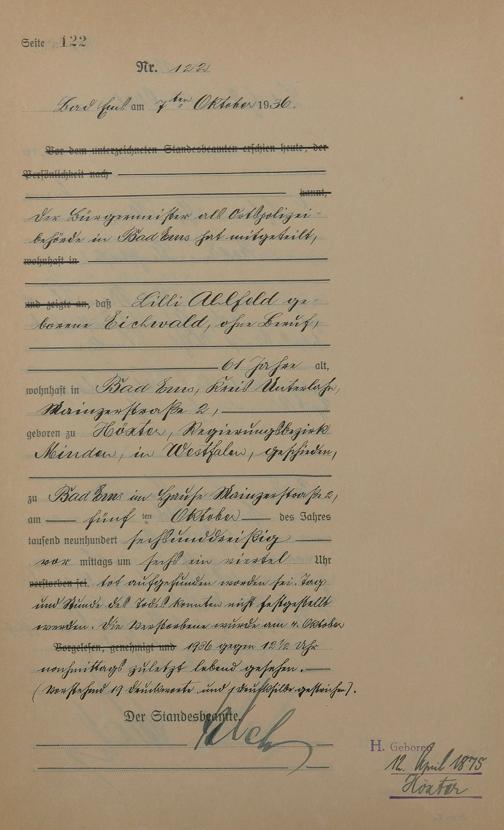 Seite 122
Nr. 122
Bad Ems am 7ten Oktober 1936.
Vor dem unterzeichneten Standesbeamten erschien heute, der
Persönlichkeit nach
kannt,
Der Bürgermeister als Ortspolizei-
behörde in Bad Ems hat mitgeteilt,
wohnhaft in
und zeigte an, daß Lilli Ahlfeld ge-
borene Eichwald, ohne Beruf,
61 Jahre alt,
wohnhaft in Bad Ems, Kreis Unterlahn,
Mainzerstraße 2,
geboren zu Höxter, Regierungsbezirk
Minden, in Westfalen, geschieden,
zu Bad Ems im Hause Mainzerstraße 2,
am fünften Oktober des Jahres
tausend neunhundert sechsunddreißig
vor mittags um sechs ein viertel Uhr
verstorben sei. tot aufgefunden worden sei. Tag
und Stunde des Todes konnten nicht festgestellt
werden. Die Verstorbene wurde am 4. Oktober
Vorgelesen, genehmigt und 1936 gegen 12½ Uhr
nachmittags zuletzt lebend gesehen.
(Vorstehend 19 Druckworte und 1 Drucksilbe gestrichen).
Der Standesbeamte.
H. Geboren
12. April 1875
Höxter